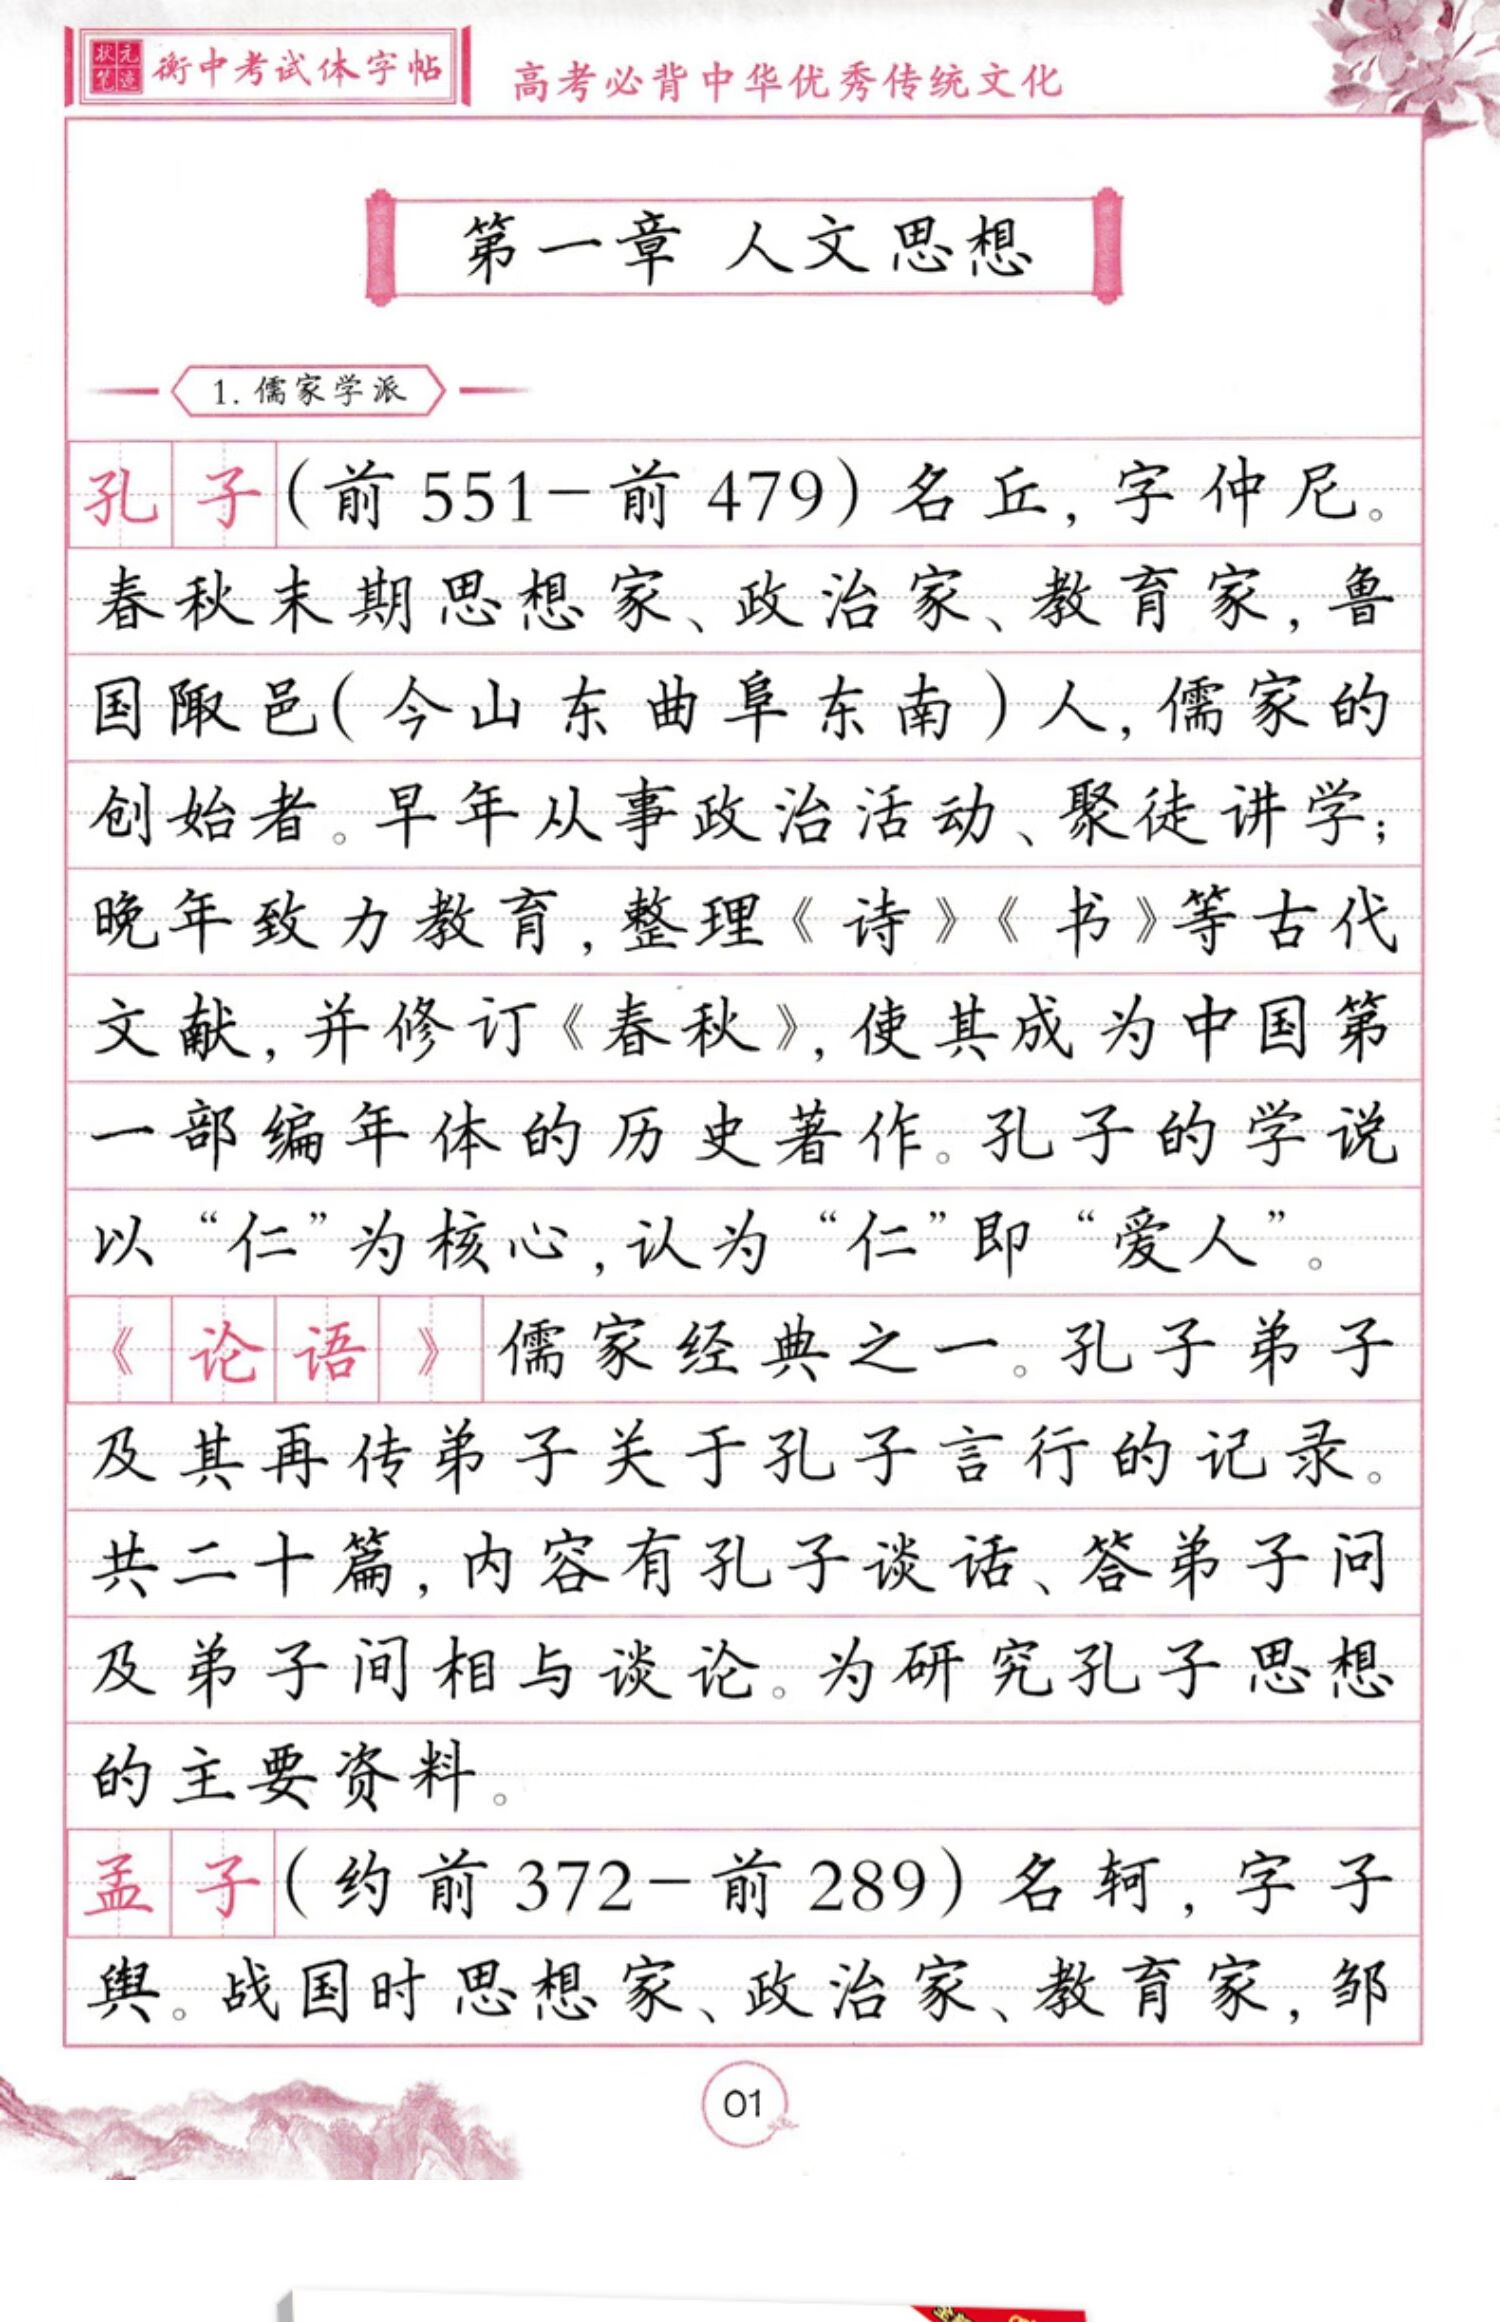 状元笔迹 衡中考试体字帖 高考必背中华优秀传统文化
第一章 人文思想
1. 儒家学派
孔子(前551-前479)名丘,字仲尼。
春秋末期思想家、政治家、教育家,鲁
国陬邑(今山东曲阜东南)人,儒家的
创始者。早年从事政治活动、聚徒讲学;
晚年致力教育,整理《诗》《书》等古代
文献,并修订《春秋》,使其成为中国第
一部编年体的历史著作。孔子的学说
以“仁”为核心,认为“仁”即“爱人”。
《论语》儒家经典之一。孔子弟子
及其再传弟子关于孔子言行的记录。
共二十篇,内容有孔子谈话、答弟子问
及弟子间相与谈论。为研究孔子思想
的主要资料。
孟子(约前372-前289)名轲,字子
舆。战国时思想家、政治家、教育家,邹
01